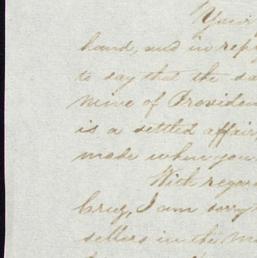 Your
hand, and in rep
to say that the sa
Mine of Providen
is a settled affair
made when you
With regar
I am sorry
sellers in the M